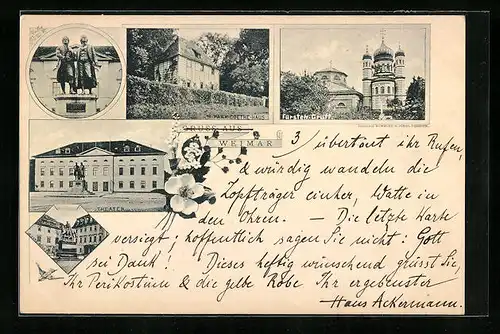 WEIMAR GOETHE-HAUS
Fürsten-Gruft
GRUSS AUS
WEIMAR
THEATER
3/ übertönt ihr Rufen,
& würdig wandeln die
Zopfträger einher, Watte in
den Ohren. — Die letzte Karte
versiegt; hoffentlich sagen Sie nicht: Gott
sei Dank! Dieses heftig wünschend grüsst Sie,
Ihr Perikostüm & die gelbe Robe Ihr ergebenster
Hans Ackermann.